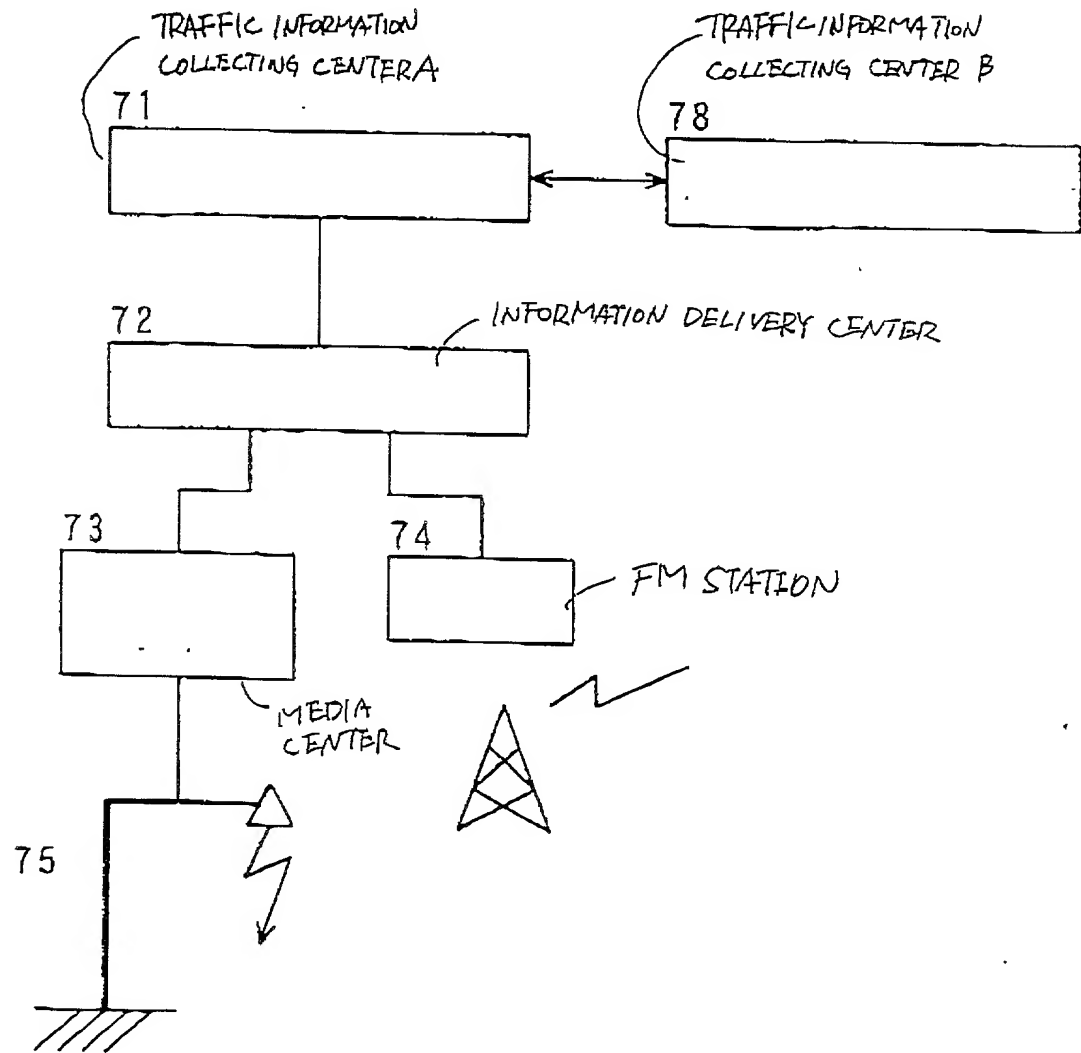 TRAFFIC INFORMATION
COLLECTING CENTER A
71
TRAFFIC INFORMATION
COLLECTING CENTER B
78
72
INFORMATION DELIVERY CENTER
73
74
FM STATION
MEDIA
CENTER
75